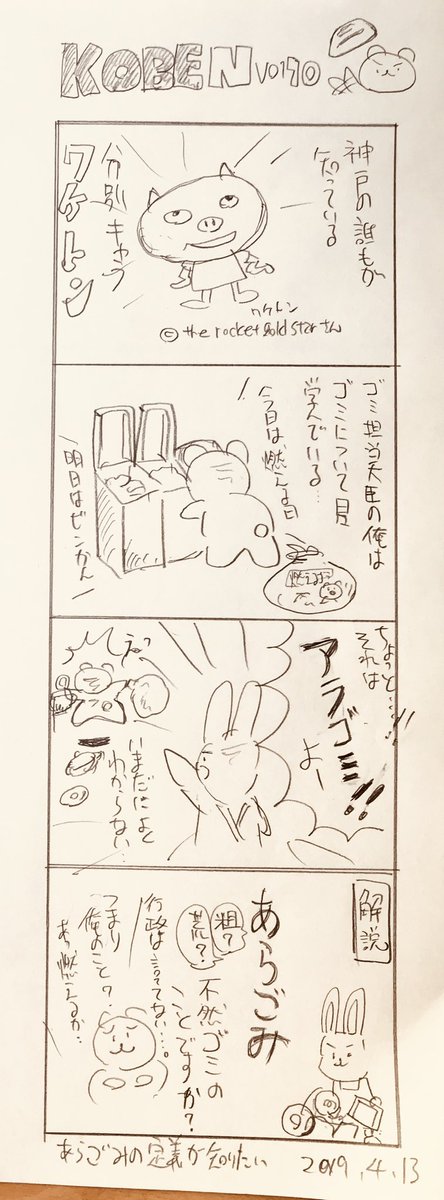 KOBEN Vol90
神戸の誰もが
知っている
分別キャラ
ワケトン
ワケトン
© the rocket gold starさん
ゴミ担当大臣の俺は
ゴミについて日々
学んでいる…
今日は、燃える日
明日はビンかん
燃えるゴミ
ちょっと…!!
それは
アラゴミ!!
よー
えっ
いまだによく
わからない…
解説
あらごみ
粗?
荒?
不燃ゴミの
ことですか?
行政は言ってない…。
つまり
俺のこと?
あ、燃えるか…
あらごみの定義が知りたい
2019.4.13